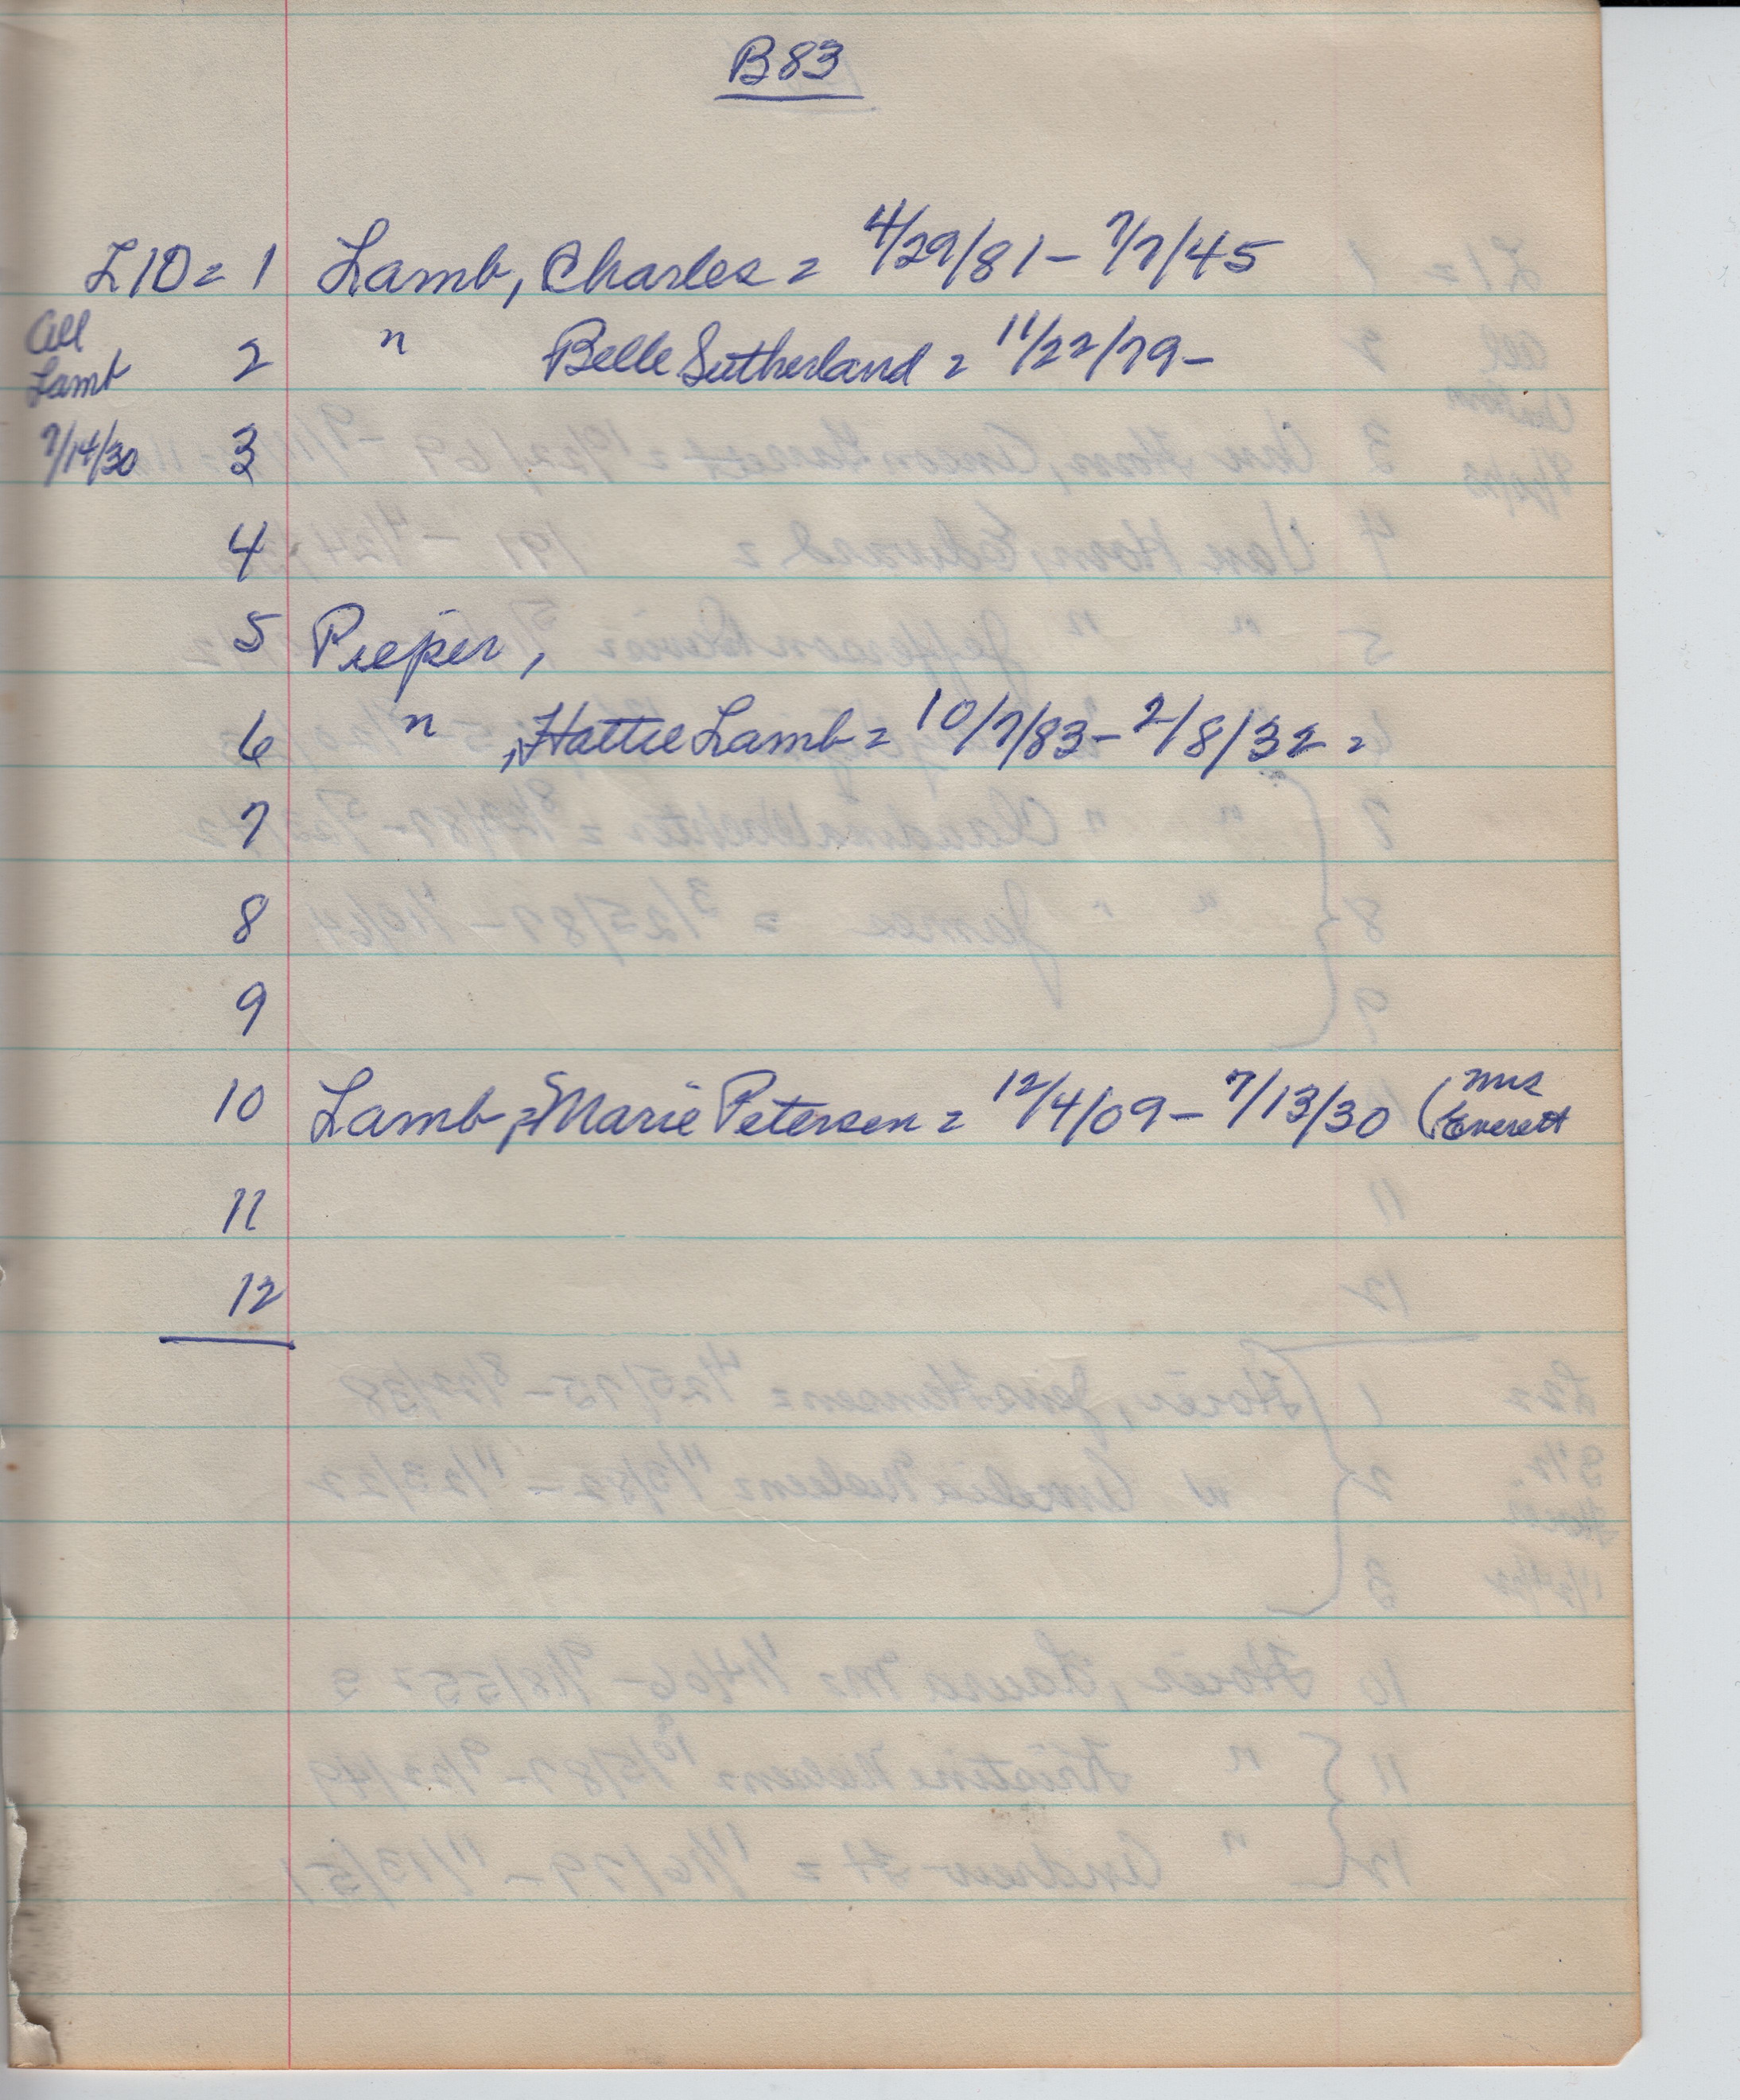 B 83
L10 = 1 Lamb, Charles = 4/29/81 - 7/7/45
All Lamb 2 " Belle Sutherland = 11/22/79 -
7/14/30 3
4
5 Pieper,
6 " , Hattie Lamb = 10/7/83 - 2/8/32 =
7
8
9
10 Lamb, = Marie Petersen = 12/4/09 - 7/13/30 (Mrs Everett
11
12